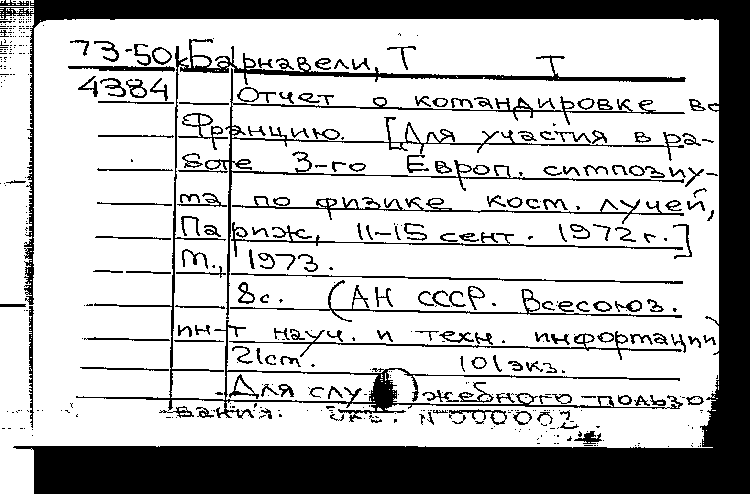 73-50к Барнавели, Т Т
4384 Отчет о командировке во
Францию. [Для участия в ра-
боте 3-го Европ. симпозиу-
ма по физике косм. лучей,
Париж, 11-15 сент. 1972 г.]
М., 1973.
8с. (АН СССР. Всесоюз.
ин-т науч. и техн. информации)
21см. 101экз.
Для служебного пользо-
вания. Экз. N 000002